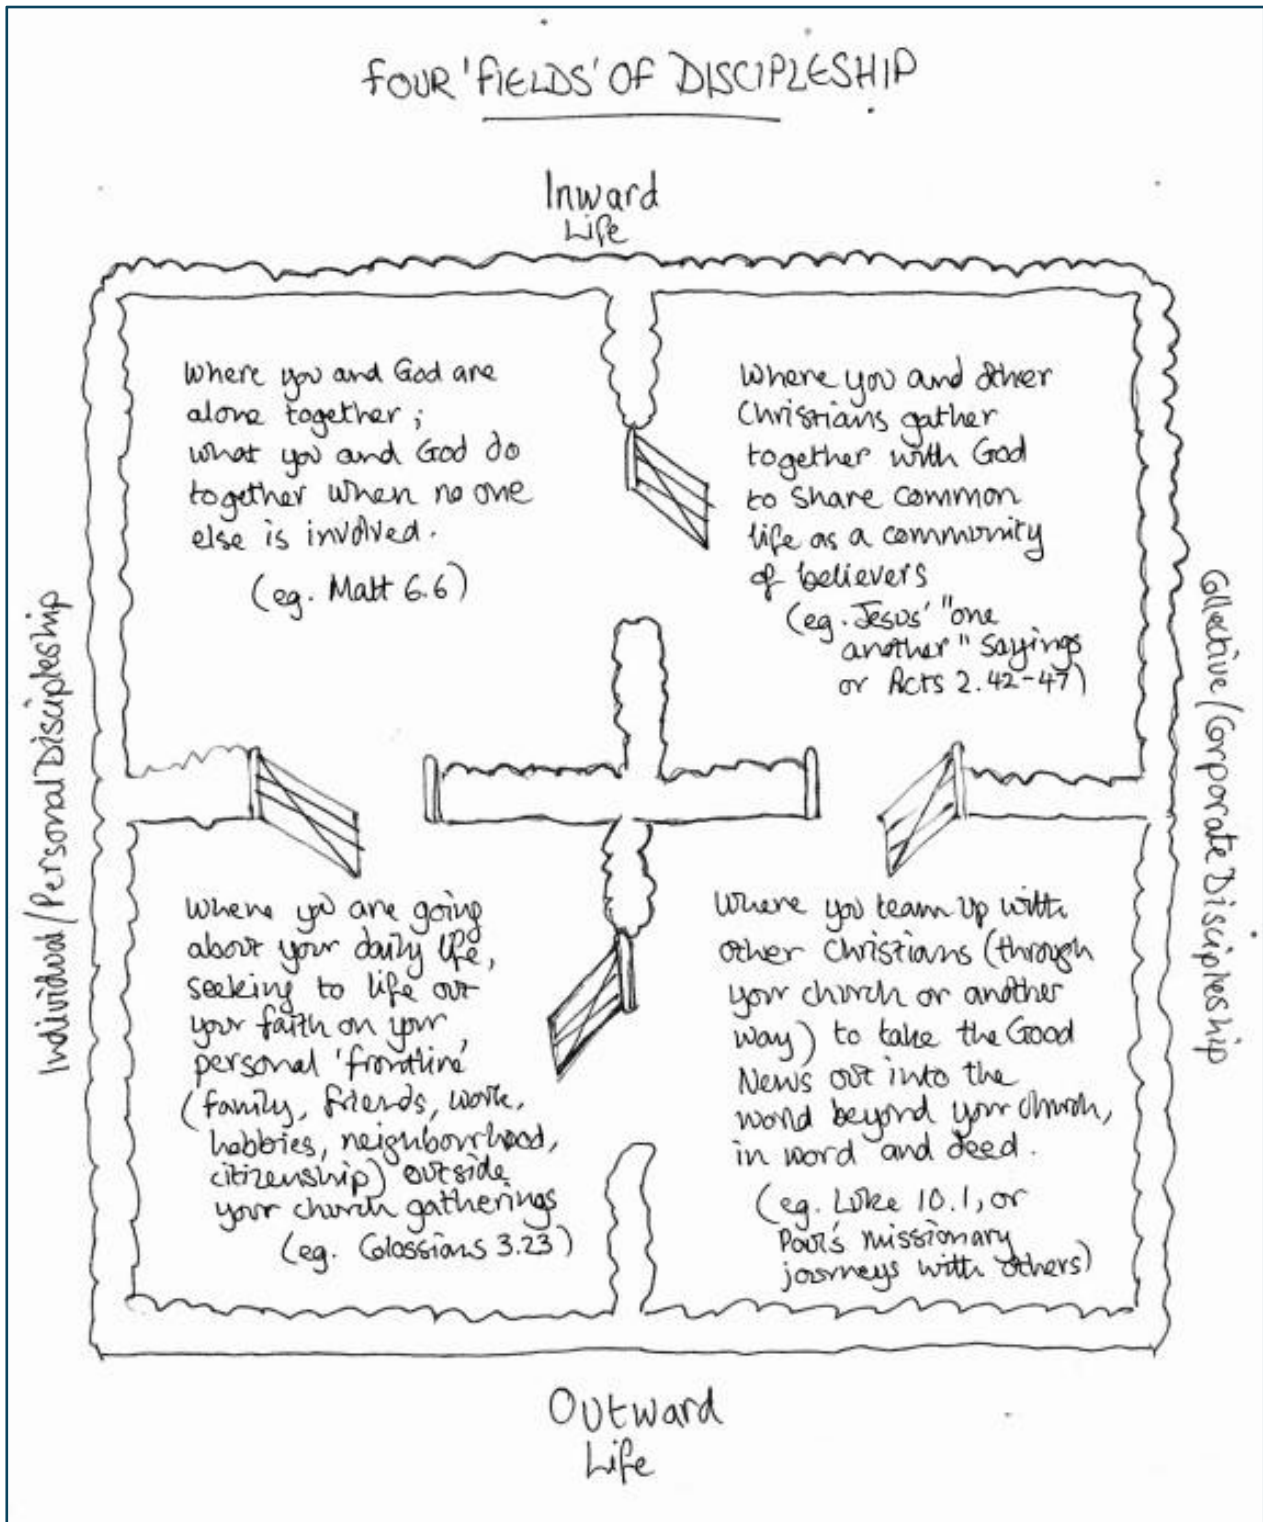 FOUR 'FIELDS' OF DISCIPLESHIP
Inward
Life
Individual/Personal Discipleship
Where you and God are
alone together;
what you and God do
together when no one
else is involved.
(eg. Matt 6.6)
Where you and other
Christians gather
together with God
to share common
life as a community
of believers
(eg. Jesus' "one
another" sayings
or Acts 2.42-47)
Collective/Corporate Discipleship
Where you are going
about your daily life,
seeking to life out
your faith on your
personal 'frontline'
(family, friends, work,
hobbies, neighbourhood,
citizenship) outside
your church gatherings
(eg. Colossians 3.23)
Where you team up with
other Christians (through
your church or another
way) to take the Good
News out into the
world beyond your church,
in word and deed.
(eg. Luke 10.1, or
Paul's missionary
journeys with others)
Outward
Life